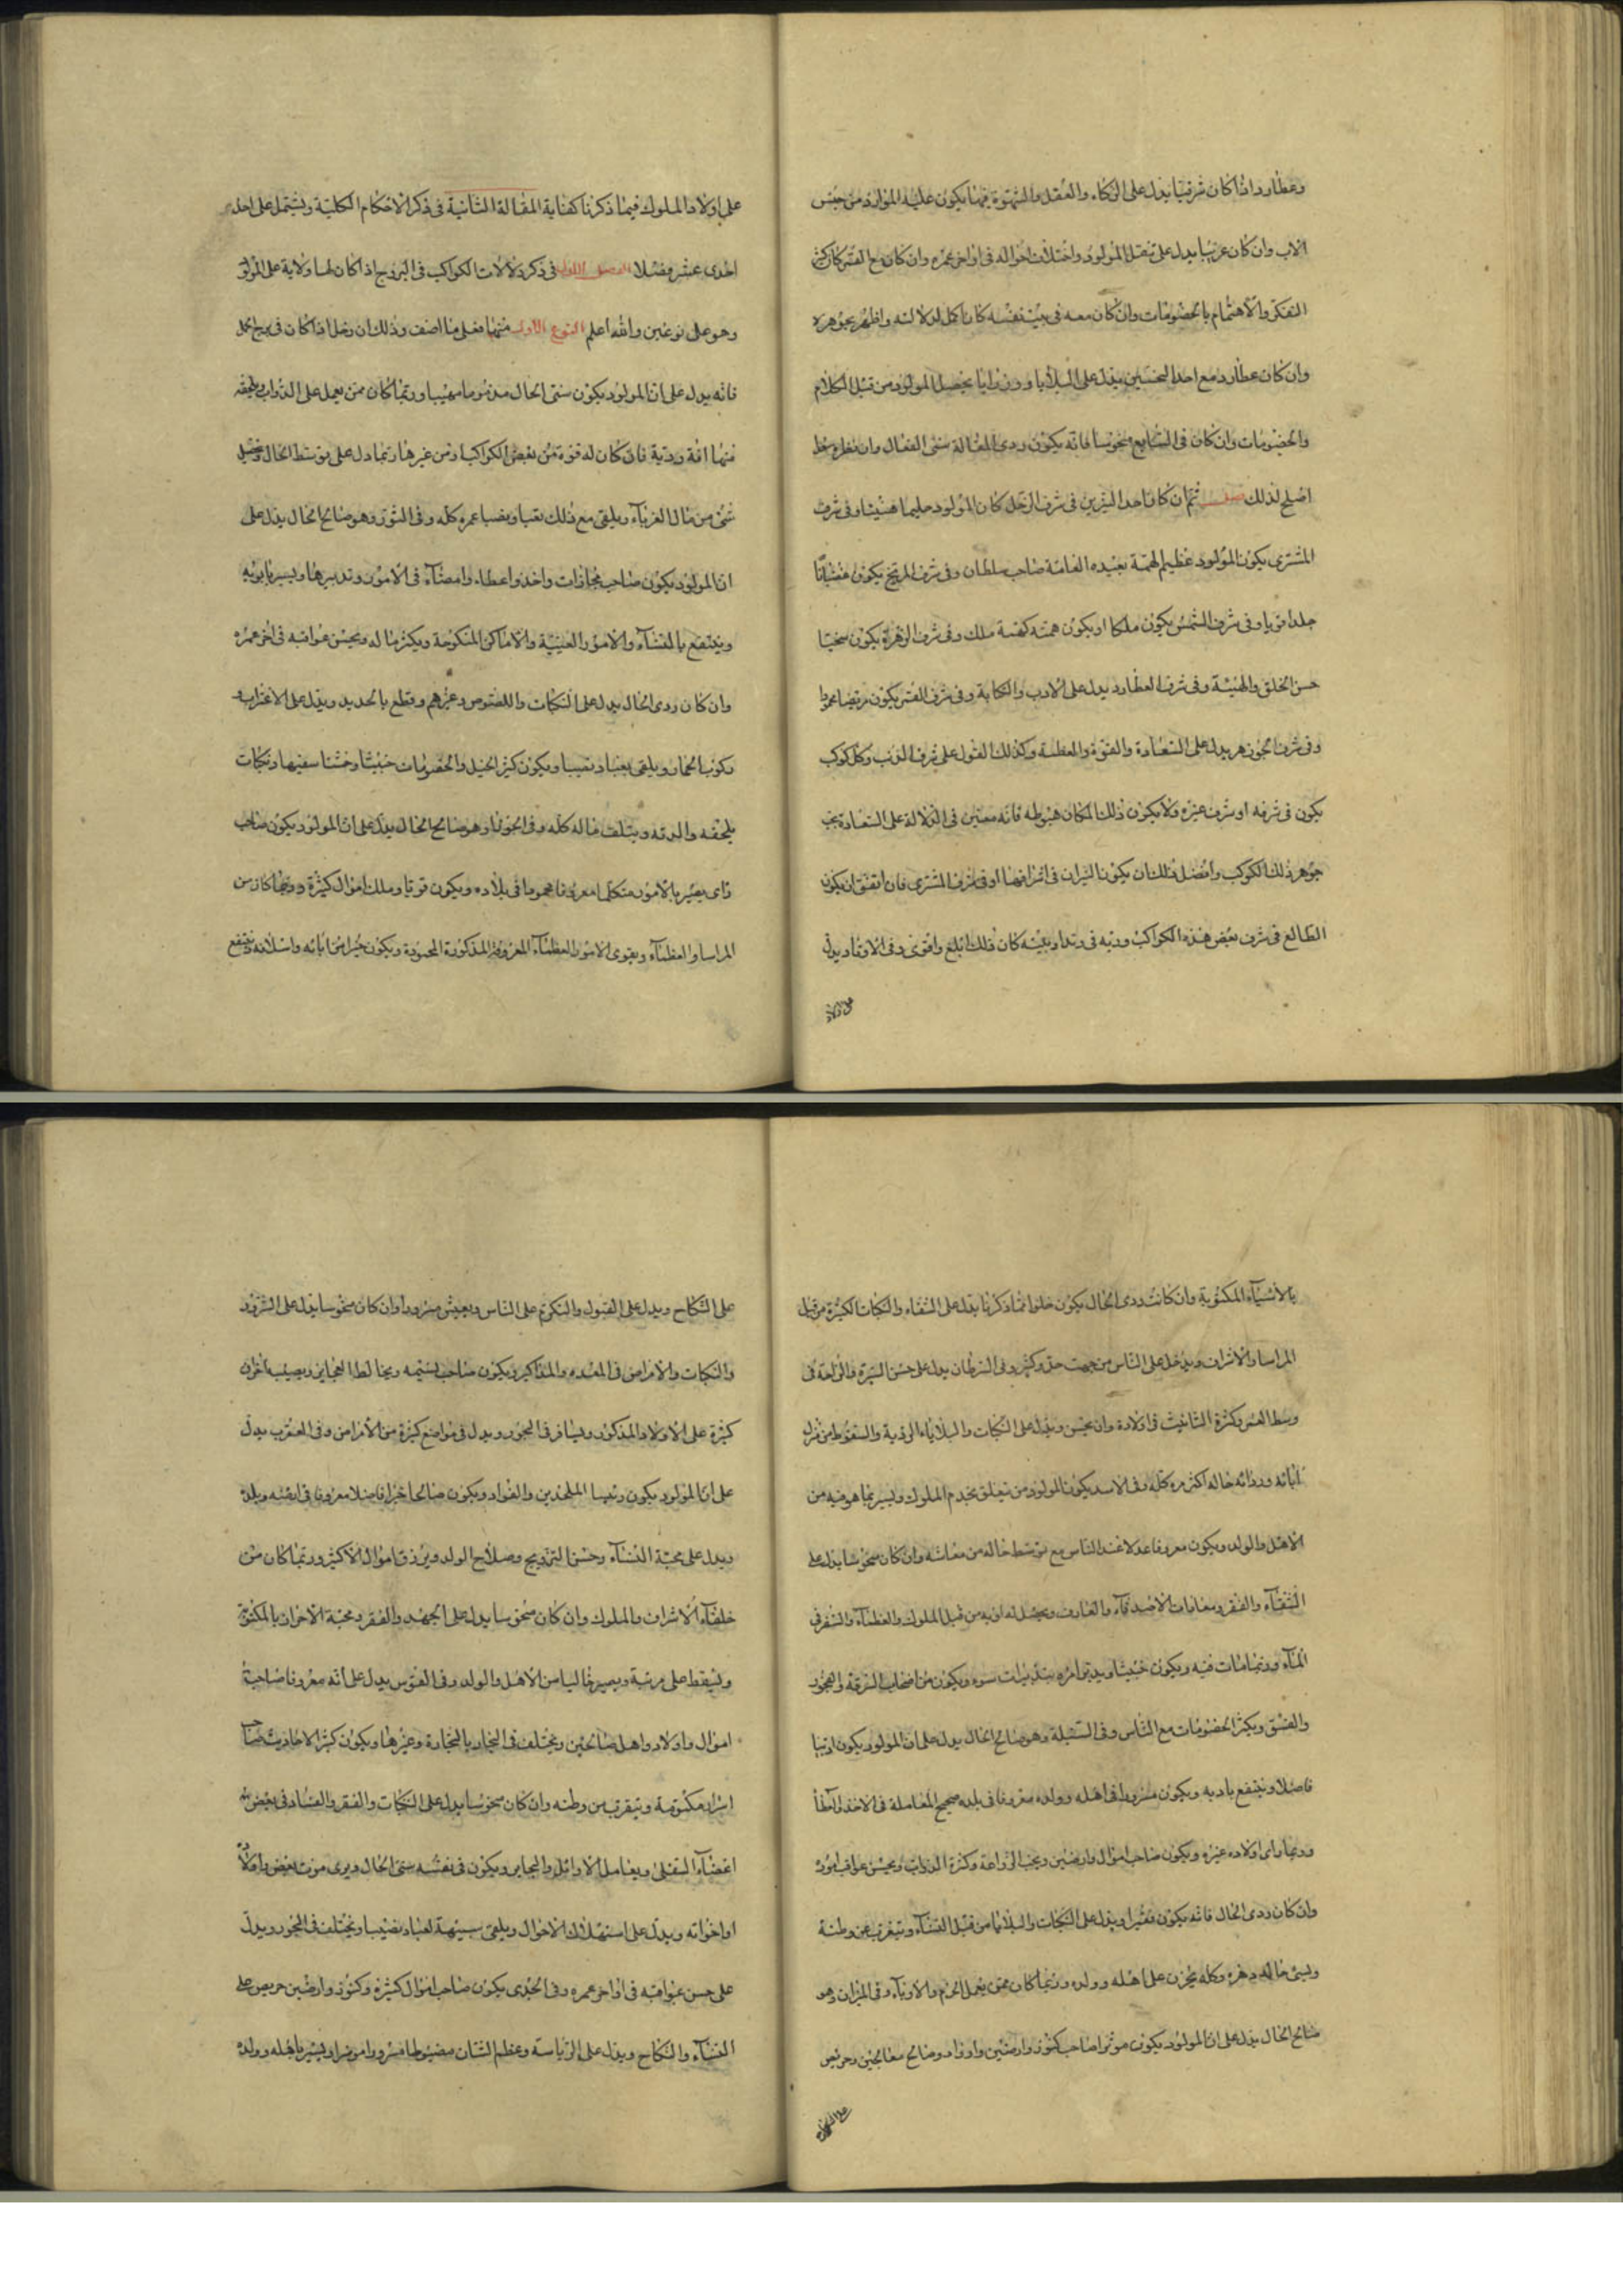 وعطارد اذا كان شرقيا يدل على الذكاء والعقل والشهوة فيما يكون عليه المولود من جنس
الاب وان كان غربيا يدل على تنقل المولود واختلاف احواله في اواخر عمره وان كان مع القمر كان كثير
التفكر والاهتمام بالخصومات وان كان معه في بيت نفسه كان اكمل لدلالته واظهر بجوهره
وان كان عطارد مع احد النحسين فيدل على البلايا ورزايا يحصل المولود من قبل الكلام
والخصومات وان كان في السابع منحوسا فانه يكون ردى المقالة سئى الفعال وان نظره سعد
اصلح لذلك ثم ان كان احد النيرين في شرف الزحل كان المولود حليما وفي شرف
المشترى يكون المولود عظيم الهمة العامة صاحب سلطان وفي شرف المريخ يكون
جلدا قويا وفي شرف الشمس يكون ملكا او يكون همته كهمة ملك وفي شرف الزهرة يكون سخيا
حسن الخلق والهيئة وفي شرف العطارد يدل على الادب والكتابة وفي شرف القمر يكون
وفي شرف الجوزهر يدل على السعادة والقوة والعظمة وكذلك القول على شرف الذنب وكل كوكب
يكون في شرفه او شرف غيره ولا يكون ذلك المكان هبوطه فانه معين في الدلالة على السعادة
جوهر ذلك الكوكب وافضل ذلك ان يكون النيران في اشرافهما او في شرف المشترى فان اتفق ان يكون
الطالع في شرف بعض هذه الكواكب وربه في وتد او بيته كان ذلك ابلغ واقوى وفي الاوتاد يدل
على اولاد
على اولاد الملوك فيما ذكرنا كفاية المقالة الثانية في ذكر الاحكام الكلية ويشتمل على احد
احدى عشر فصلا الفصل الاول في ذكر دلالات الكواكب في البروج اذا كان لها ولاية على المولود
وهو على نوعين والله اعلم النوع الاول منهما فعلى ما اصف وذلك ان زحل اذا كان في برج الحمل
فانه يدل على ان المولود يكون سئى الحال مذموما مهيبا وربما كان ممن يعمل على الدواب ويلحقه
منها افة ردية فان كان له قوة من بعض الكواكب او من غيرها ربما دل على توسط الحال
شئ من مال الغرباء ويلقى مع ذلك تعبا ونصبا عمره كله وفي الثور وهو صالح الحال يدل على
ان المولود يكون صاحب مجازات واخذ واعطاء وامضاء في الامور وتدبيرها ويسير بابويه
وينتفع بالنساء والامور العتيقة والاماكن ويكثر ماله ويحسن عواقبه في اخر عمره
وان كان ردى الحال يدل على النكبات واللصوص وغيرهم وقطع بالحديد ويدل على الاغتراب
ركوب الحمار ويلقى تعبا ونصبا ويكون كثير الحيل والخصومات خبيثا سفيها ونكبات
يلحقه والديه ويتلف ماله كله وفي الجوزا وهو صالح الحال يدل على ان المولود يكون صاحب
راى بصير بالامور متكلما معروفا في بلاده ويكون قويا وملك اموال كثيرة وربما كان من
والعظماء ويقوى الامور العظماء المعروفة المذكورة المحمودة ويكون خيرا من ابائه واسلافه وينتفع
بالاشياء المكتوبة وان كانت ردى الحال يكون خلوا مما ذكرنا يدل على الشقاء والنكبات الكثيرة من قبل
والاشراف ويدخل على الناس من جهت حق وكثير وفي السرطان يدل على حسن السيرة والراحة في
وسط العمر وكثرة التانيث في اولاده وان نحس ويدل على النكبات والبلاياء الردية والسقوط من منزل
ابائه ورداءه حاله اكثر عمره كله وفي الاسد يكون المولود من يتعلق بخدم الملوك ويسير بما هو فيه من
الاهل والولد ويكون معروفا عدلا عند الناس مع توسط حاله من معاشه وان كان منحوسا يدل على
الشقاء والفقر ومعادات الاصدقاء والمعارف ويحصل له اذية من قبل الملوك والعظماء والسفر في
الماء وربما مات فيه ويكون خبيثا ويدبر امره بتدبيرات سوء ويكون من اصحاب السرقة والفجور
والفسق ويكثر الخصومات مع الناس وفي السنبلة وهو صالح الحال يدل على ان المولود يكون اديبا
فاضلا وينتفع بادبه ويكون مسرورا في اهله وولده معروفا في بلده صحيح المعاملة في الاخذ والعطا
وربما اولاده غيره ويكون صاحب اموال وارضين ويحب الزراعة وكثرة الدواب ويحسن عواقب اموره
وان كان ردى الحال فانه يكون فقيرا ويدل على النكبات والبلايا من قبل النساء ويتغرب عن وطنه
وسئ حاله دهره وكله يحزن على اهله وولده وربما كان ممن يعمل وفي الميزان وهو
صالح الحال يدل على ان المولود يكون صاحب كنوز وارضين وحريص
على النكاح
على النكاح ويدل على القبول والتكرم على الناس ويعيش مسرورا وان كان منحوسا يدل على الشرور
والنكبات والامراض في المعده والمذاكير ويكون صاحب ويخالط ويصيبه احزان
كثيرة على الاولاد المذكور ويسافر في البحور ويدل في مواضع كثيرة من الامراض وفي العقرب يدل
على ان المولود يكون رئيسا والقواد ويكون صالحا خيرا فاضلا معروفا في وبلده
ويدل على محبة النساء وحسن التزويج وصلاح الولد ويرزق اموال الاكثير وربما كان من
خلفاء الاشراف والملوك وان كان منحوسا يدل على الجهد والفقر ومحبة الاخوان
ويسقط على مرتبة ويصير خاليا من الاهل والولد وفي القوس يدل على انه معروفا صاحب
اموال واولاد واهل صالحين ويختلف في البحار بالتجارة وغيرها ويكون كثير الاحاديث
اسرار مكتومة ويتغرب من وطنه وان كان منحوسا يدل على النكبات والفقر والفساد في بعض
اعضاء السفلى ويعامل الاوائل ويكون في نفسه سئى الحال ويرى موت بعض اولاده
او اخواته ويدل على استهلاك الاحوال ويلقى ويختلف في البحور ويدل
على حسن عواقبه في اواخر عمره وفي الجدى يكون صاحب اموال كثيرة وكنوز وارضين حريص على
النساء والنكاح ويدل على الرياسة وعظم الشان مضبوطا مسرورا ويسير باهله وولده